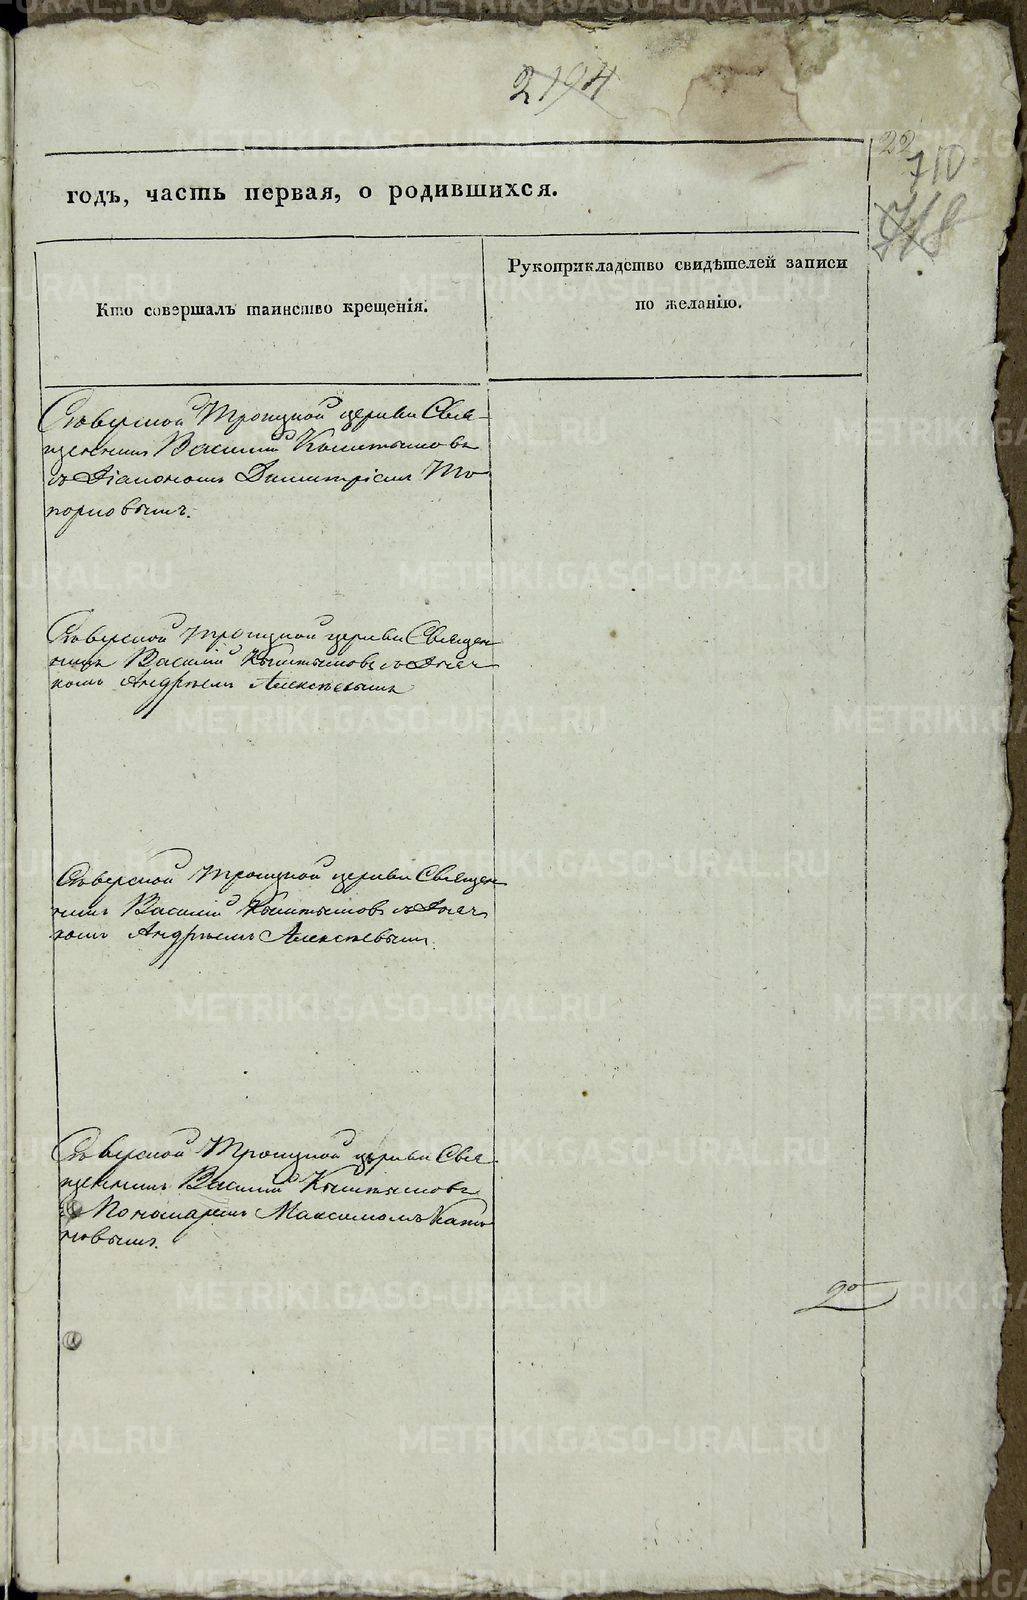 2194
22
710
718
годъ, часть первая, о родившихся.
Кто совершалъ таинство крещенія.
Рукоприкладство свидѣтелей записи
по желанію.
Сѣверской Троицкой церкви Свя-
щенникъ Василій Кыштымовъ
съ Діакономъ Димитріемъ То
порковымъ.
Сѣверской Троицкой церкви Священ
никъ Василій Кыштымовъ съ Дьяч
комъ Андреемъ Алексѣевымъ
Сѣверской Троицкой церкви Священ
никъ Василій Кыштымовъ съ Дьяч
комъ Андреемъ Алексѣевымъ.
Сѣверской Троицкой церкви Свя
щенникъ Василій Кыштымовъ
Пономаремъ Максимомъ
новымъ.
METRIKI.GASO-URAL.RU